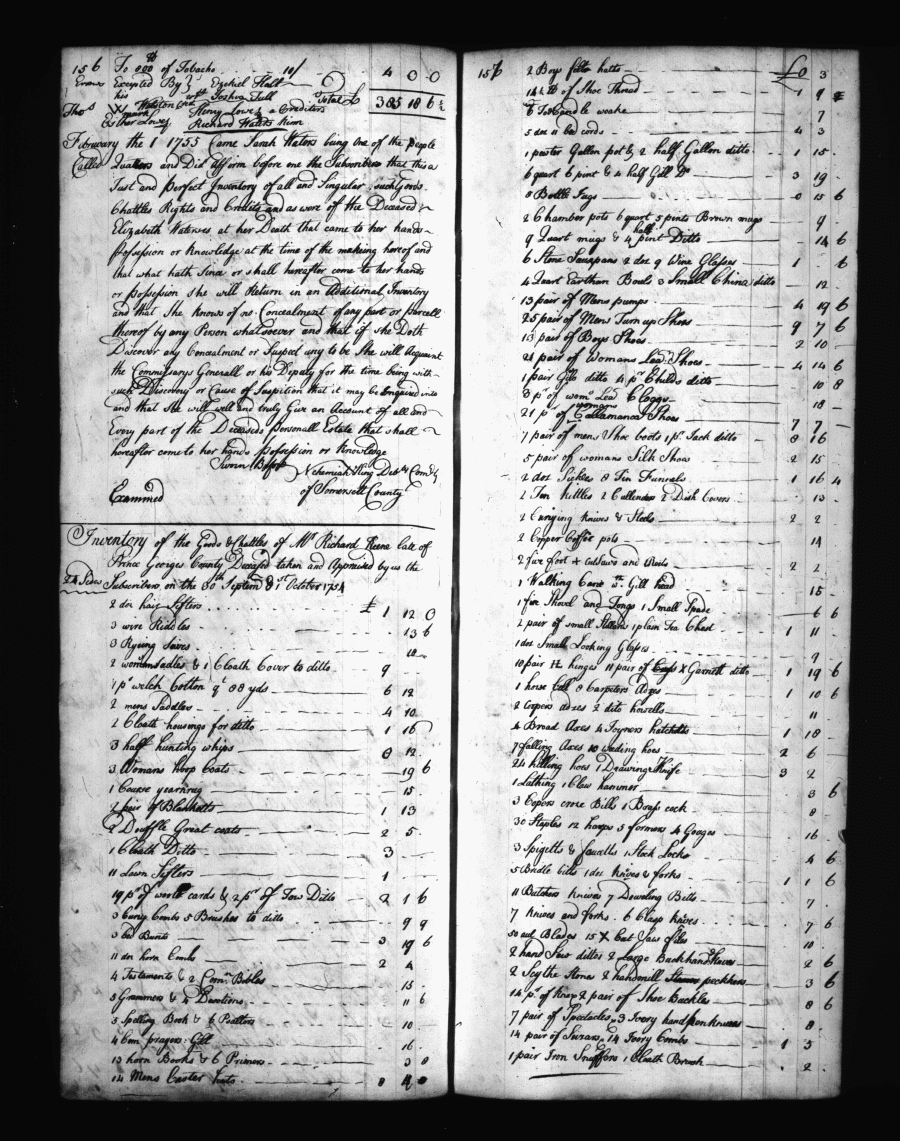 156 To 000 th of Tobacho 10/ 4 0 0
Errors Excepted By Ezekiel Hall
his Watston wth Joshua Tull Total £ 385 18 6½
Thos X mark Henry Lowe & a Crediters
Esther Lowe Richard Waters Kinn
February the 1 1755 Came Sarah Waters being one of the People
Called Quakers and Did Affirm before one the Subscribers that this a
Just and Perfect Inventory of all and Singular such Goods
Chattles Rights and Credits and as were of the Deceased
Elizabeth Waterses at her Death that came to her hands
Possession or Knowledge at the time of the making hereof and
that what hath Since or shall hereafter come to her hands
or possession she will Return in an Additional Inventory
and that She Knows of no Concealment of any part or parcell
thereof by any Person whatsoever and that if She Doth
Discover any Concealment or Suspect any to be She will Acquaint
the Commisarys Generall or his Deputy for the time being with
such Discovery or Cause of Suspition that it may be Enquired into
and that She will well and truly Give an Account of all and
Every part of the Deceaseds Personall Estate that shall
hereafter come to her hands possession or Knowledge
Sworn Before Nehemiah King Debty Comsy
of Somersett County
Examined
Inventory of the Goods & Chattles of Mr Richard Keene late of
Prince Georges County Deceased taken and Appraised by us the
24 Sides Subscribers on the 30th Septem & 1st October 1754
2 doz hair Sifters £ 1 12 0
3 wire Riddles 13 6
3 Rying Sives 10
2 womansadles & 1 Cloath Cover to ditto 9
1 ps welch Cotton qt 88 yds 6 12
2 mens Saddles 4 10
2 Cloath housings for ditto 1 16
3 half hunting whips 0 12
3 Womans hoop Coats 19 6
1 Course yearnrug 15
2 pair of Blanketts 1 13
2 Douffle Great coats 2 5
1 Cloath Ditto 3
11 Lawn Sifters 1
19 pr of woole cards & 2 pr of Tow Ditto 2 1 6
3 Curry Combs 5 Brushes to ditto 9 9
3 bed Bunts 3 19 6
11 doz horn Combs 2 4
4 Testaments & 2 Comn Bibles 15
3 Grammers & 4 Devotions 11 6
3 Spelling Book & 6 Psalters 10
4 Com prayers Gilt 16
13 horn Books & 6 Primers 3 8
14 Mens Castor hats 8 4 0
156 2 Boys felto hatts £0 3
14½ lb of Shoe Thread 1 9
6 lb Candle weake 7
5 doz 11 bed cords 4 3
1 pewter Gallon pot & 2 half Gallon ditto 1 15
6 quart 6 pint & 4 half Gill Do 3 19
8 Bottle Jugs 0 15 6
2 Chamber pots 6 quart 3 pints Brown mugs 9
9 Quart mugs & 4 half pint Ditto 14 6
6 Stone Saucpans 2 doz 9 Wine Glasses 1 6
4 Quart Earthan Bouls 3 Small China ditto 12
13 pair of Mens pumps 4 19 6
25 pair of Mens Turn up Shoes 9 7 6
13 pair of Boys Shoes 2 10
21 pair of Womans Lear Shoes 4 14 6
1 pair Gills ditto 4 pr Childs ditto 10 8
3 pr of womns Lear Cloggs 18
21 pr of womans Callamanca Shoes 7 7
7 pair of mens Shoe boots 1 pr Jack ditto 8 16
5 pair of womans Silk Shoes 2 15
2 doz Sickles 8 Tin Funnels 1 16 4
2 Tea Kettles 2 Cullenders 2 Dish Covers 13
2 Carving Knives & Steels 2 2
2 Copper Coffee pots 14
2 five foot X cutsaws and Rests 2 2
1 Walking Cane wth Gill head 15
1 fire Shovel and Tongs 1 Small Spade 6 6
2 pair of small Stillards 1 plain Tea Chest 1 11
1 doz Small Looking Glasses 9
10 pair Hr hinges 11 pair of X Garnett ditto 1 19 6
1 horse Bell 8 Carpeters Adzes 1 10 6
2 Coopers adzes 2 ditto howells 11
4 Broad Axes 4 Joyners hatchetts 1 18
7 falling Axes 10 weeding hoes 2 6
24 hilling hoes 1 Drawing Knife 3 2
1 Lathing 1 Claw hammer 3 6
3 Copers croze Bills 1 Brass cock 8
30 Staples 12 hasps 3 formers 4 Gouges 16
3 Spigetts & faucetts 1 Stock Locks 4 6
5 Bridle bitts 1 doz Knives & forks 1 1 6
11 Butchers Knives 7 Doweling Bitts 7
7 Knives and forks 6 Clasp Knives 7 6
50 aul Blades 15 X Cut Saw files 10
2 hand Saw dittos 2 Large Buckhand 2 6
2 Scythe Stones 2 handmill peckhers 3 6
14 pr of Knee 2 pair of Shoe Buckles 8 6
7 pair of Spectacles 3 Ivory hand penknives 8
14 pair of Sizars 14 Ivory Combs 1 3
1 pair Iron Snuffers 1 Cloath Brush 2